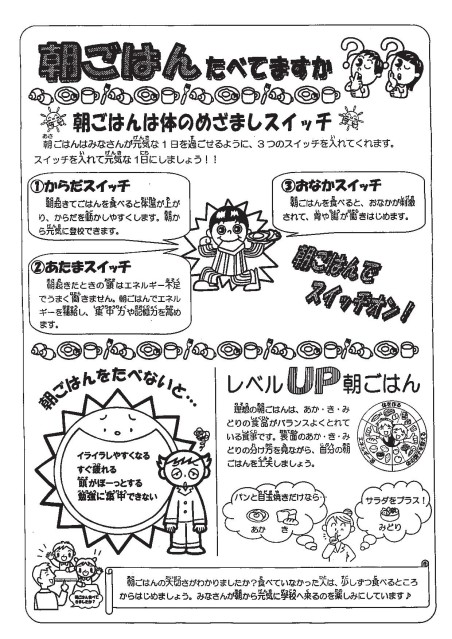 朝ごはんたべてますか
朝ごはんは体のめざましスイッチ
朝ごはんはみなさんが元気な1日を過ごせるように、3つのスイッチを入れてくれます。
スイッチを入れて元気な1日にしましょう!!
①からだスイッチ
朝起きてごはんを食べると体温が上が
り、からだを動かしやすくします。朝か
ら元気に登校できます。
③おなかスイッチ
朝ごはんを食べると、おなかが刺激
されて、胃や腸が動きはじめます。
②あたまスイッチ
朝起きたときの頭はエネルギー不足
でうまく働きません。朝ごはんでエネル
ギーを補給し、集中力や記憶力を高め
ます。
朝ごはんで
スイッチオン!
朝ごはんをたべないと…
イライラしやすくなる
すぐ疲れる
頭がぼーっとする
勉強に集中できない
レベルUP朝ごはん
理想の朝ごはんは、あか・き・み
どりの食品がバランスよくとれて
いる食事です。裏面のあか・き・み
どりの分け方を見ながら、自分の朝
ごはんを工夫しましょう。
パンと目玉焼きだけなら…
あか
き
サラダをプラス!
みどり
朝ごはんの大切さがわかりましたか?食べていなかった人は、少しずつ食べるところ
からはじめましょう。みなさんが朝から元気に学校へ来るのを楽しみにしています♪